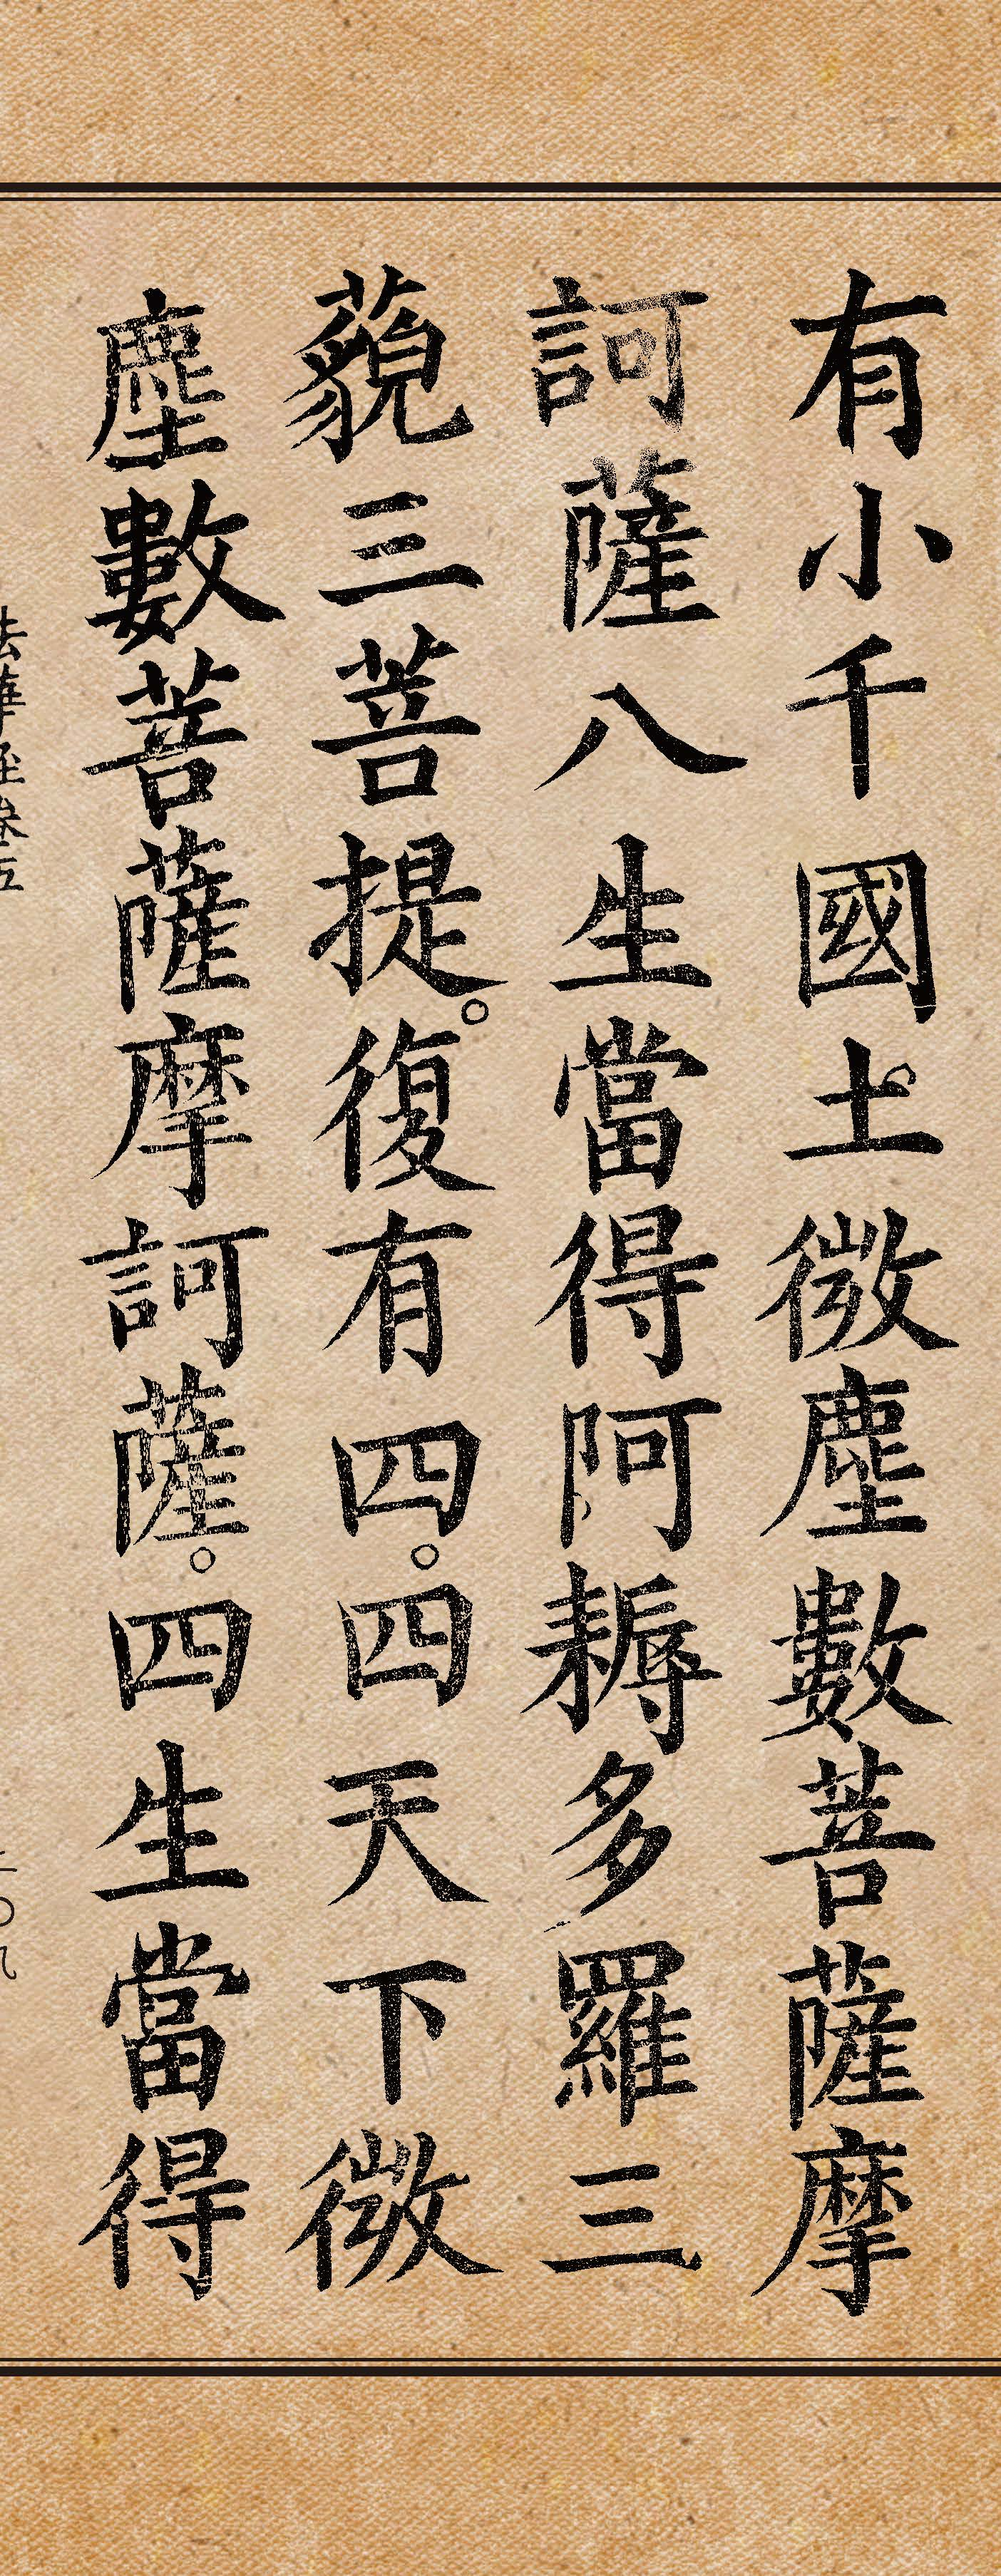 有小千國土。微塵數菩薩摩
訶薩八生當得阿耨多羅三
藐三菩提。復有四。四天下微
塵數菩薩摩訶薩。四生當得
法華經卷五